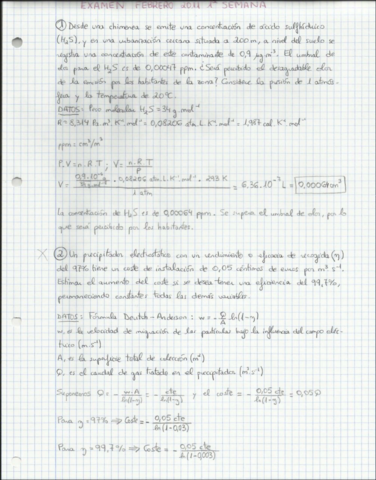 EXAMEN FEBRERO 2011 1ª SEMANA
① Desde una chimenea se emite una concentración de ácido sulfhídrico
(H₂S), y en una urbanización cercana situada a 200 m, a nivel del suelo se
registra una concentración de este contaminante de 0,9 µg m⁻³. El umbral de
olor para el H₂S es de 0,00047 ppm. ¿Será percibido el desagradable olor
de la emisión por los habitantes de la zona? Considere la presión de 1 atmós-
fera y la temperatura de 20ºC.
DATOS: Peso molecular H₂S = 34 g mol⁻¹
R = 8,314 Pa m³ K⁻¹ mol⁻¹ = 0,08206 atm L K⁻¹ mol⁻¹ = 1,987 cal K⁻¹ mol⁻¹
ppm = cm³/m³
P.V = n.R.T ; V = n.R.T / P
V = · 0,08206 atm L K⁻¹ mol⁻¹ · 293 K / 1 atm = 6,36·10⁻⁷ L =
La concentración de H₂S es de 0,00064 ppm. Se supera el umbral de olor, por lo
que será percibido por los habitantes.
② Un precipitador electrostático con un rendimiento o eficacia de recogida (η)
del 97% tiene un coste de instalación de 0,05 céntimos de euros por m³ s⁻¹.
Estimar el aumento del coste si se desea tener una eficiencia del 99,7%,
permaneciendo constantes todas las demás variables.
DATOS: Fórmula Deutsch-Anderson: w = - Q/A ln(1-η)
w, es la velocidad de migración de las partículas bajo la influencia del campo eléc-
trico (m s⁻¹)
A, es la superficie total de colección (m²)
Q, es el caudal de gas tratado en el precipitador (m³ s⁻¹)
Suponemos Q = - w.A / ln(1-η) = - cte / ln(1-η) y el coste = - 0,05 cte / ln(1-η) = 0,05Q
Para η = 97% ⇒ Coste = - 0,05 cte / ln(1-0,03)
Para η = 99,7% ⇒ Coste = - 0,05 cte / ln(1-0,003)